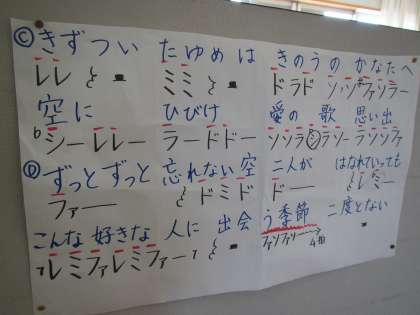 Ⓒきずつい たゆめは きのうの かなたへ
レレ と ミミ と ドラド ソ,ソ#ファソラー
空に ひびけ 愛の歌 思い出
シーレレー ラードドー ソソラシラソー ラソラー
Ⓓずっとずっと 忘れない空 二人が はなれていっても
ファー ドミド ドー レミー
こんな好きな 人に 出会う季節 二度とない
レミファレミファー ファソファソー→ 4拍